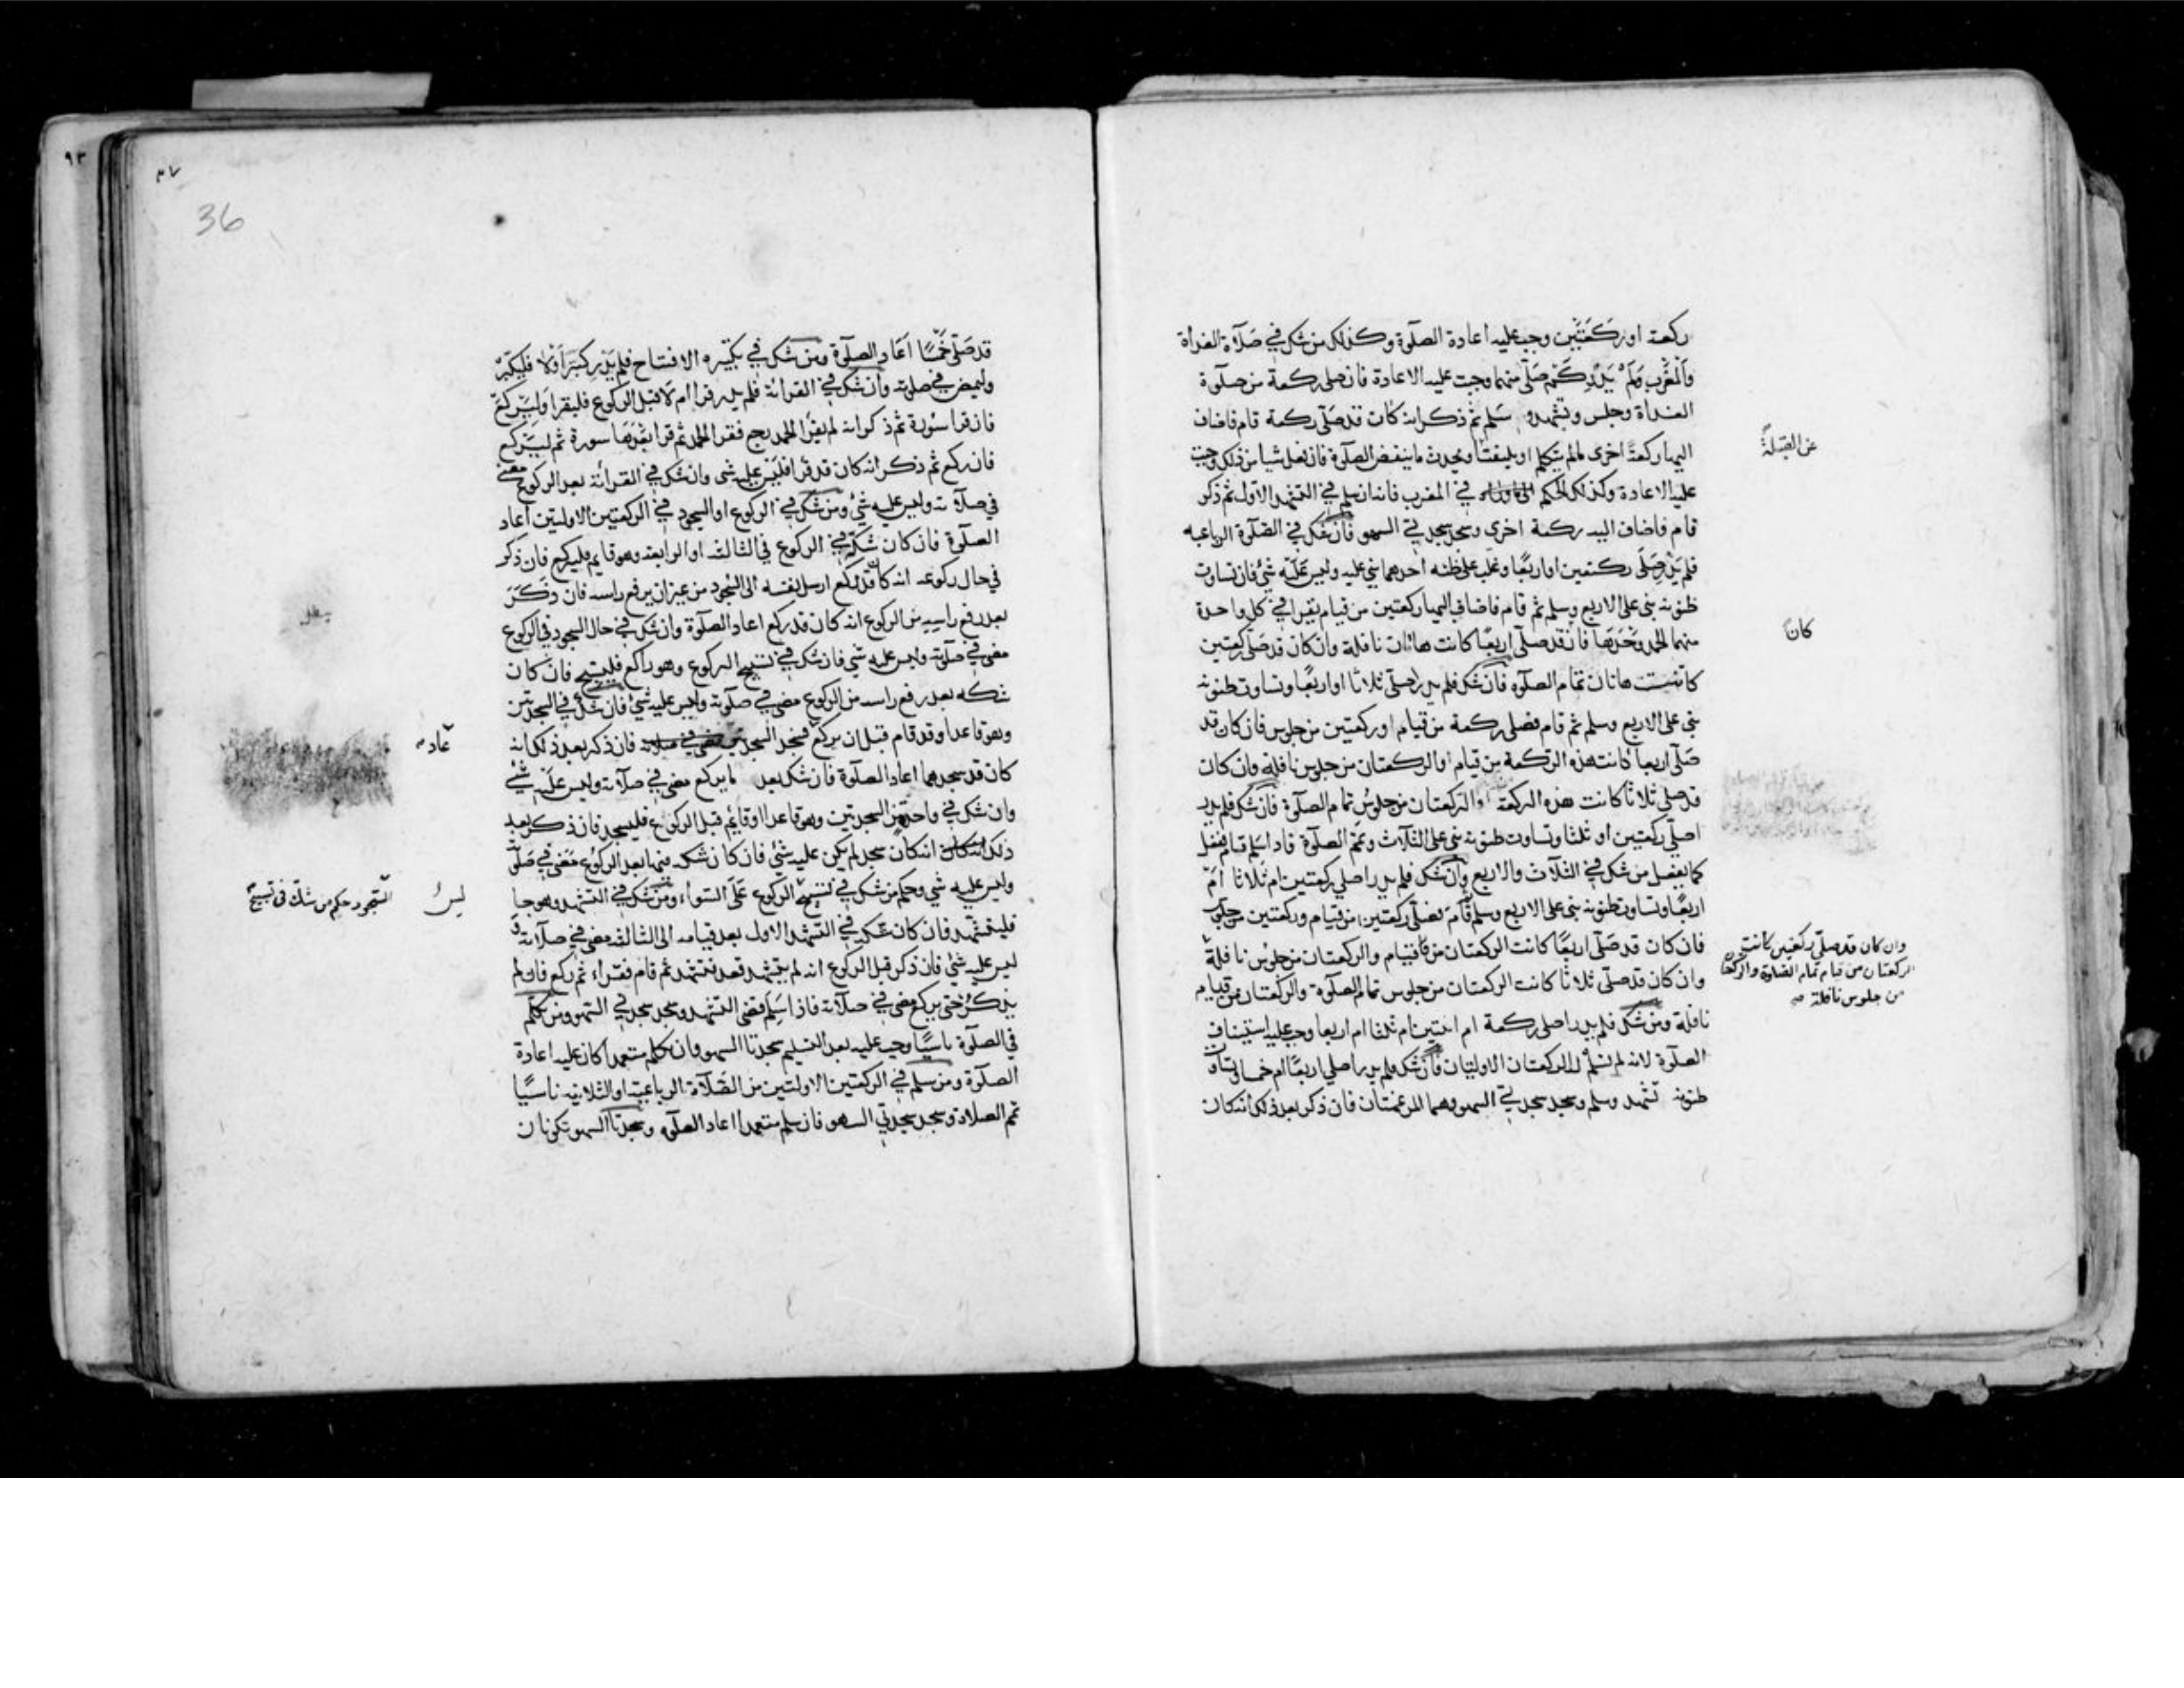 ركعة او ركعتين وجب عليه اعادة الصلوة وكذلك من شك في صلاة الغداة
والمغرب ولم يدر كم صلى منهما وجبت عليه الاعادة فان صلى ركعة من صلوة
الغداة وجلس وتشهد و سلم ثم ذكر انه كان قد صلى ركعة قام فاضاف
اليها ركعة اخرى مالم يتكلم او يلتفت او يحدث ما ينقض الصلوة فان فعل شيا من ذلك وجبت
عن القبلة
عليه الاعادة وكذلك الحكم في المغرب فانه ان سلم في التشهد الاول ثم ذكر
قام فاضاف اليه ركعة اخرى وسجد سجدتي السهو فان شك في الصلوة الرباعيه
فلم يدر صلى ركعتين او اربعا وغلب على ظنه احدهما بنى عليه وليس عليه شئ فان تساوت
ظنونه بنى على الاربع وسلم ثم قام فاضاف اليها ركعتين من قيام يقرا في كل واحدة
منهما الحمد وحدها فان قد صلى اربعا كانت هاتان نافلة وان كان قد صلى ركعتين
كان
كانت هاتان تمام الصلوه فان شك فلم يدر اصلى ثلاثا او اربعا وتساوت ظنونه
بنى على الاربع وسلم ثم قام فصلى ركعة من قيام او ركعتين من جلوس فان كان قد
صلى اربعا كانت هذه الركعة من قيام او الركعتان من جلوس نافلة وان كان
قد صلى ثلاثا كانت هذه الركعة او الركعتان من جلوس تمام الصلوة فان شك فلم يدر
اصلى ركعتين او ثلثا وتساوت ظنونه بنى على الثلاث وتمم الصلوة فاذا سلم قام ففعل
كما يفعل من شك في الثلاث والاربع وان شك فلم يدر اصلى ركعتين ام ثلاثا ام
اربعا وتساوت ظنونه بنى على الاربع وسلم قام فصلى ركعتين من قيام وركعتين من جلوس
فان كان قد صلى اربعا كانت الركعتان من قيام والركعتان من جلوس نافلة
وان كان قد صلى ركعتين كانت
الركعتان من قيام تمام الصلوة والركعتان
من جلوس نافلة صه
وان كان قد صلى ثلاثا كانت الركعتان من جلوس تمام الصلوة والركعتان من قيام
نافلة ومن شك فلم يدر اصلى ركعة ام اثنتين ام ثلثا ام اربعا وجب عليه استيناف
الصلوة لانه لم تسلم له الركعتان الاوليتان فان شك فلم يدر اصلى اربعا ام خمسا وتساوت
ظنونه تشهد وسلم وسجد سجدتي السهو وهما المرغمتان فان ذكر بعد ذلك انه كان
٩٣
٣٧
36
قد صلى خمسا اعاد الصلوة ومن شك في تكبيره الافتتاح فلم يدر كبر او لا فليكبر
وليمض في صلوته وان شك في القرائة فلم يدر قرا ام لا قبل الركوع فليقرا وليركع
فان قرا سورة ثم ذكر انه لم يقرا الحمد رجع فقرا الحمد ثم قرا بعدها سورة ثم ليركع
فان ركع ثم ذكر انه كان قد قرا فليس عليه شى وان شك في القرائة بعد الركوع مضى
في صلاته وليس عليه شئ ومن شك في الركوع او السجود في الركعتين الاوليتين اعاد
الصلوة فان كان شكه في الركوع في الثالثه او الرابعة وهو قايم فليركع فان ذكر
في حال ركوعه انه كان قد ركع ارسل نفسه الى السجود من غير ان يرفع راسه فان ذكر
بعد رفع راسه من الركوع انه كان قد ركع اعاد الصلوة وان شك في حال السجود في الركوع
مضى في صلوته وليس عليه شي فان شك في تسبيح الركوع وهو راكع فليسبح فان كان
شكه بعد رفع راسه من الركوع مضى في صلوته وليس عليه شئ فان شك في السجدتين
وهو قاعد او قد قام قبل ان يركع فسجد السجدتين فان ذكر بعد ذلك انه
عاد
كان قد سجدهما اعاد الصلوة فان شك بعد ما يركع مضى في صلاته وليس عليه شئ
وان شك في واحدة من السجدتين وهو قاعد او قايم قبل الركوع فليسجد فان ذكر بعد
ذلك انه كان سجد لم يكن عليه شئ فان كان شكه فيها بعد الركوع مضى في صلوته
وليس عليه شي وحكم من شك في تسبيح الركوع على السواء ومن شك في التشهد وهو جا
ليس
السجود حكم من شك في تسبيح
فليتشهد فان كان شكه في التشهد الاول بعد قيامه الى الثالثة مضى في صلاته و
ليس عليه شئ فان ذكر قبل الركوع انه لم يتشهد قعد فتشهد ثم قام فقراء ثم ركع فان لم
يذكر حتى يركع مضى في صلاته فاذا سلم قضى التشهد وسجد سجدتي السهو ومن تكلم
في الصلوة ناسيا وجب عليه بعد التسليم سجدتا السهو وان تكلم متعمدا كان عليه اعادة
الصلوة ومن سلم في الركعتين الاولتين من الصلاة الرباعية او الثلاثيه ناسيا
تمم الصلاة وسجد سجدتي السهو فان سلم متعمدا اعاد الصلوه وسجدتا السهو تكونان